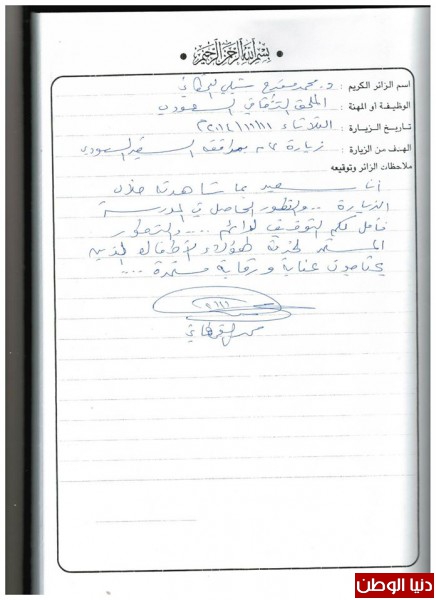 بسم الله الرحمن الرحيم
اسم الزائر الكريم : د. محمد مفرح شبلي القحطاني
الوظيفة او المهنة : الملحق الثقافي السعودي
تاريخ الزيارة : الثلاثاء ٢٠١٤/١١/١١
الهدف من الزيارة : زيارة عامه بمرافقة السفير السعودي
ملاحظات الزائر وتوقيعه
أنا سعيد بما شاهدته خلال
الزيارة .. والتطور الحاصل في المدرسة
فأمل لكم التوفيق الدائم .... والتطوير
المستمر لخدمة هؤلاء الأطفال الذين
يحتاجون عناية ورقابة مستمرة ...
١١/١١
محمد القحطاني
دنيا الوطن